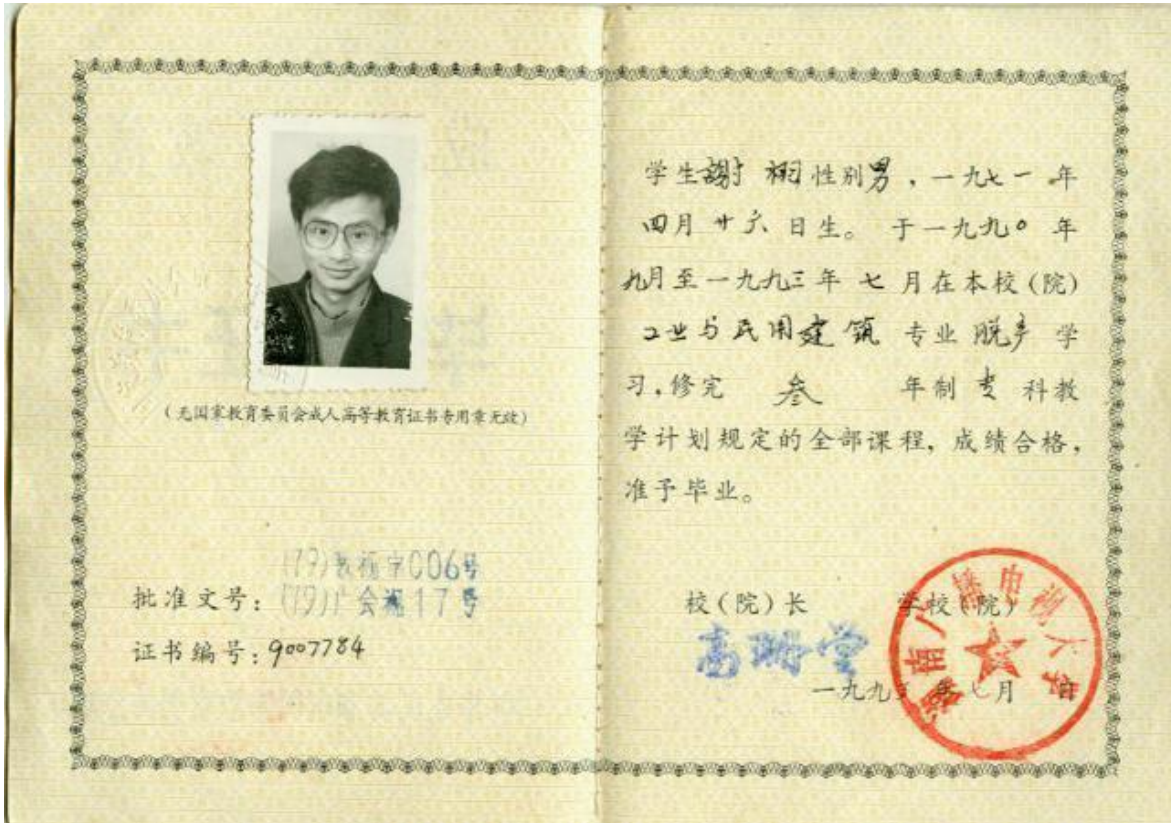 （无国家教育委员会成人高等教育证书专用章无效）
(79)教视字006号
批准文号：(79)广会视17号
证书编号：9007784
学生謝栩性别男，一九七一年
四月廿六日生。于一九九〇年
九月至一九九三年七月在本校（院）
工业与民用建筑专业脱产学
习，修完叁年制专科教
学计划规定的全部课程，成绩合格，
准予毕业。
校（院）长 学校（院）
高珊堂
湖南广播电视大学
一九九三年七月 日